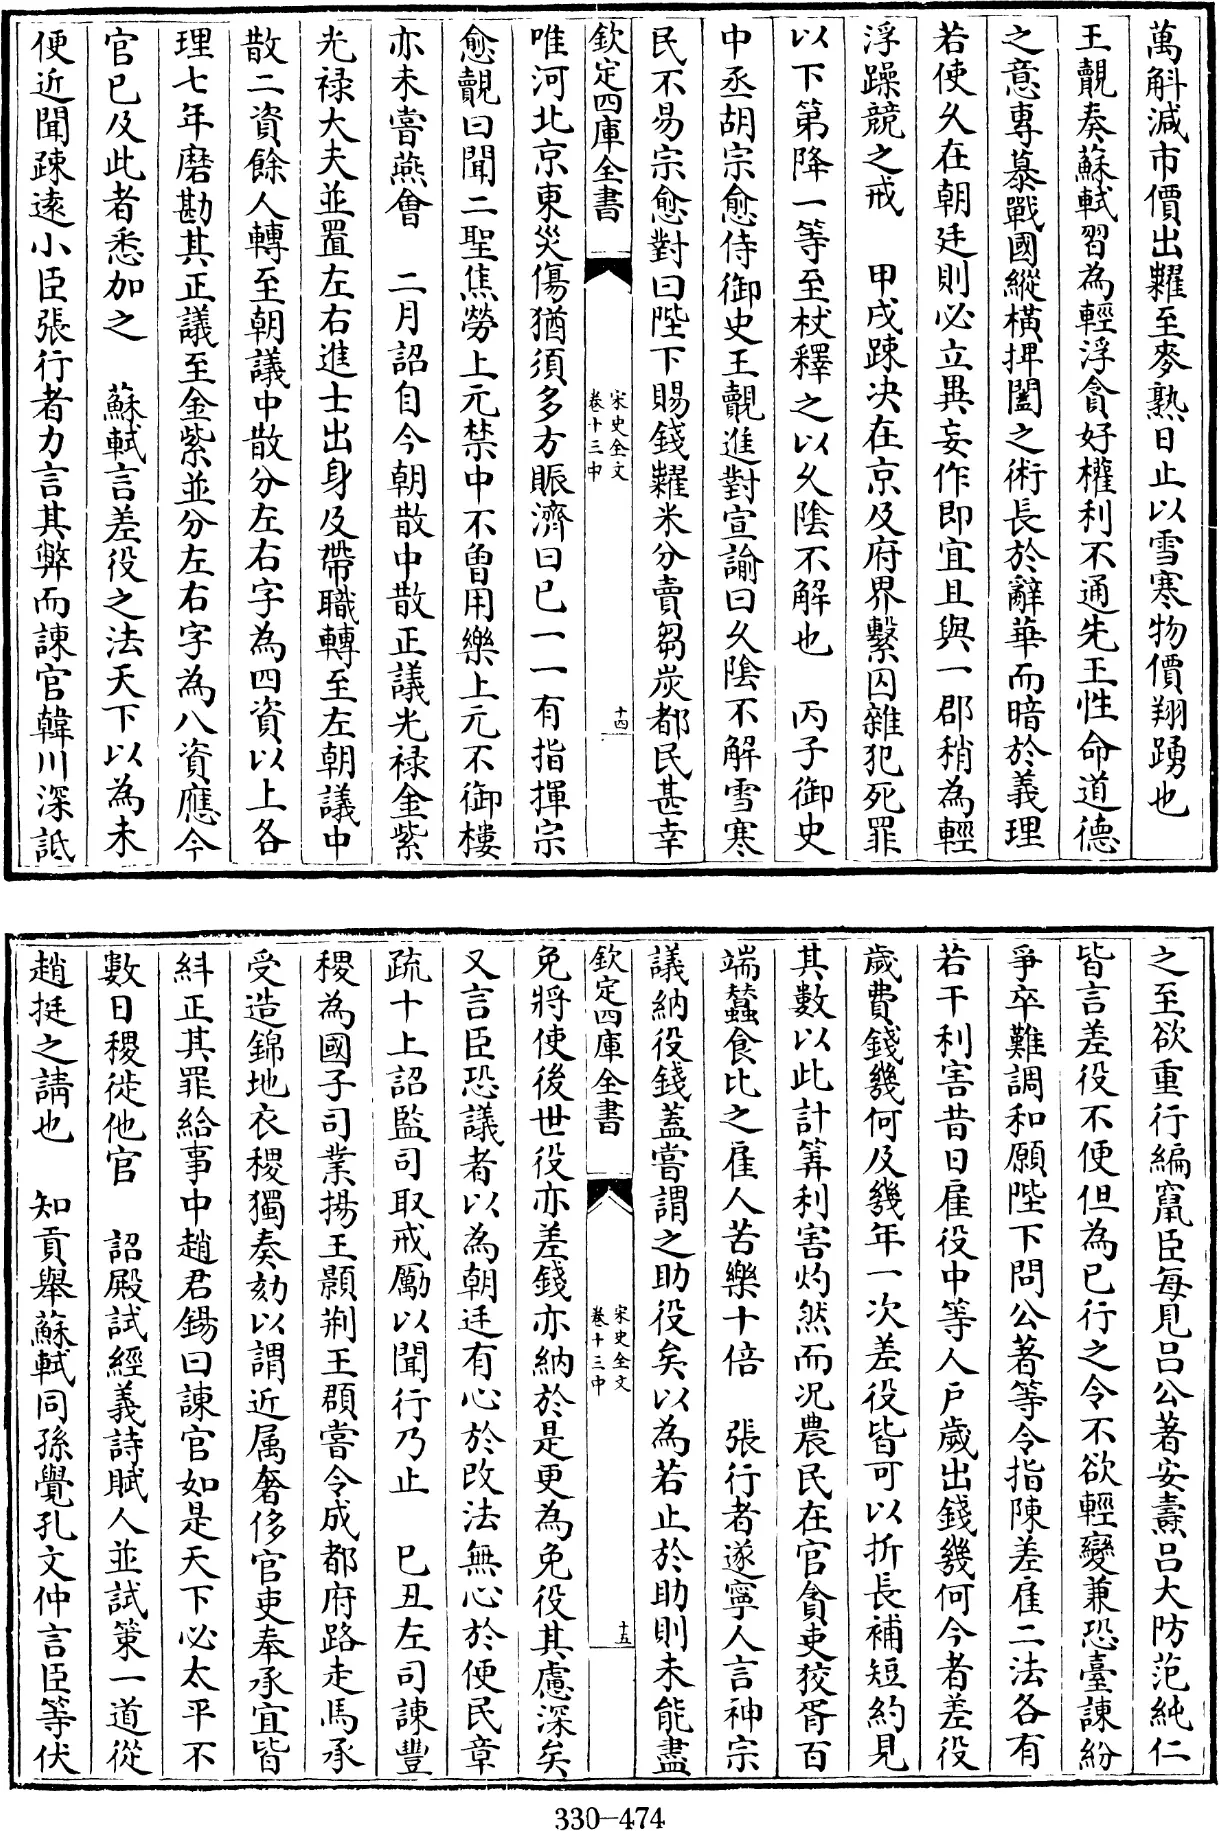 萬斛減市價出糶至麥熟日止以雪寒物價翔踴也
王覿奏蘇軾習為輕浮貪好權利不通先王性命道德
之意專慕戰國縱橫捭闔之術長於辭華而暗於義理
若使久在朝廷則必立異妄作即宜且與一郡稍為輕
浮躁競之戒　甲戌疎决在京及府界繫囚雜犯死罪
以下第降一等至杖釋之以久陰不解也　丙子御史
中丞胡宗愈侍御史王覿進對宣諭曰久陰不解雪寒
民不易宗愈對曰陛下賜錢糶米分賣芻炭都民甚幸
欽定四庫全書
宋史全文
卷十三中
十四
唯河北京東災傷猶須多方賑濟曰已一一有指揮宗
愈覿曰聞二聖焦勞上元禁中不曽用樂上元不御樓
亦未嘗燕會　二月詔自今朝散中散正議光祿金紫
光祿大夫並置左右進士出身及帶職轉至左朝議中
散二資餘人轉至朝議中散分左右字為四資以上各
理七年磨勘其正議至金紫並分左右字為八資應今
官已及此者悉加之　蘇軾言差役之法天下以為未
便近聞疎遠小臣張行者力言其弊而諫官韓川深詆
之至欲重行編竄臣每見吕公著安燾吕大防范純仁
皆言差役不便但為已行之令不欲輕變兼恐臺諫紛
爭卒難調和願陛下問公著等令指陳差雇二法各有
若干利害昔日雇役中等人戶歲出錢幾何今者差役
歲費錢幾何及幾年一次差役皆可以折長補短約見
其數以此計筭利害灼然而况農民在官貪吏狡胥百
端蠶食比之雇人苦樂十倍　張行者遂寧人言神宗
議納役錢蓋嘗謂之助役矣以為若止於助則未能盡
欽定四庫全書
宋史全文
卷十三中
十五
免將使後世役亦差錢亦納於是更為免役其慮深矣
又言臣恐議者以為朝廷有心於改法無心於便民章
疏十上詔監司取戒勵以聞行乃止　巳丑左司諫豐
稷為國子司業揚王顥荆王頵嘗令成都府路走馬承
受造錦地衣稷獨奏劾以謂近属奢侈官吏奉承宜皆
糾正其罪給事中趙君錫曰諫官如是天下必太平不
數日稷徙他官　詔殿試經義詩賦人並試策一道從
趙挺之請也　知貢舉蘇軾同孫覺孔文仲言臣等伏
330—474